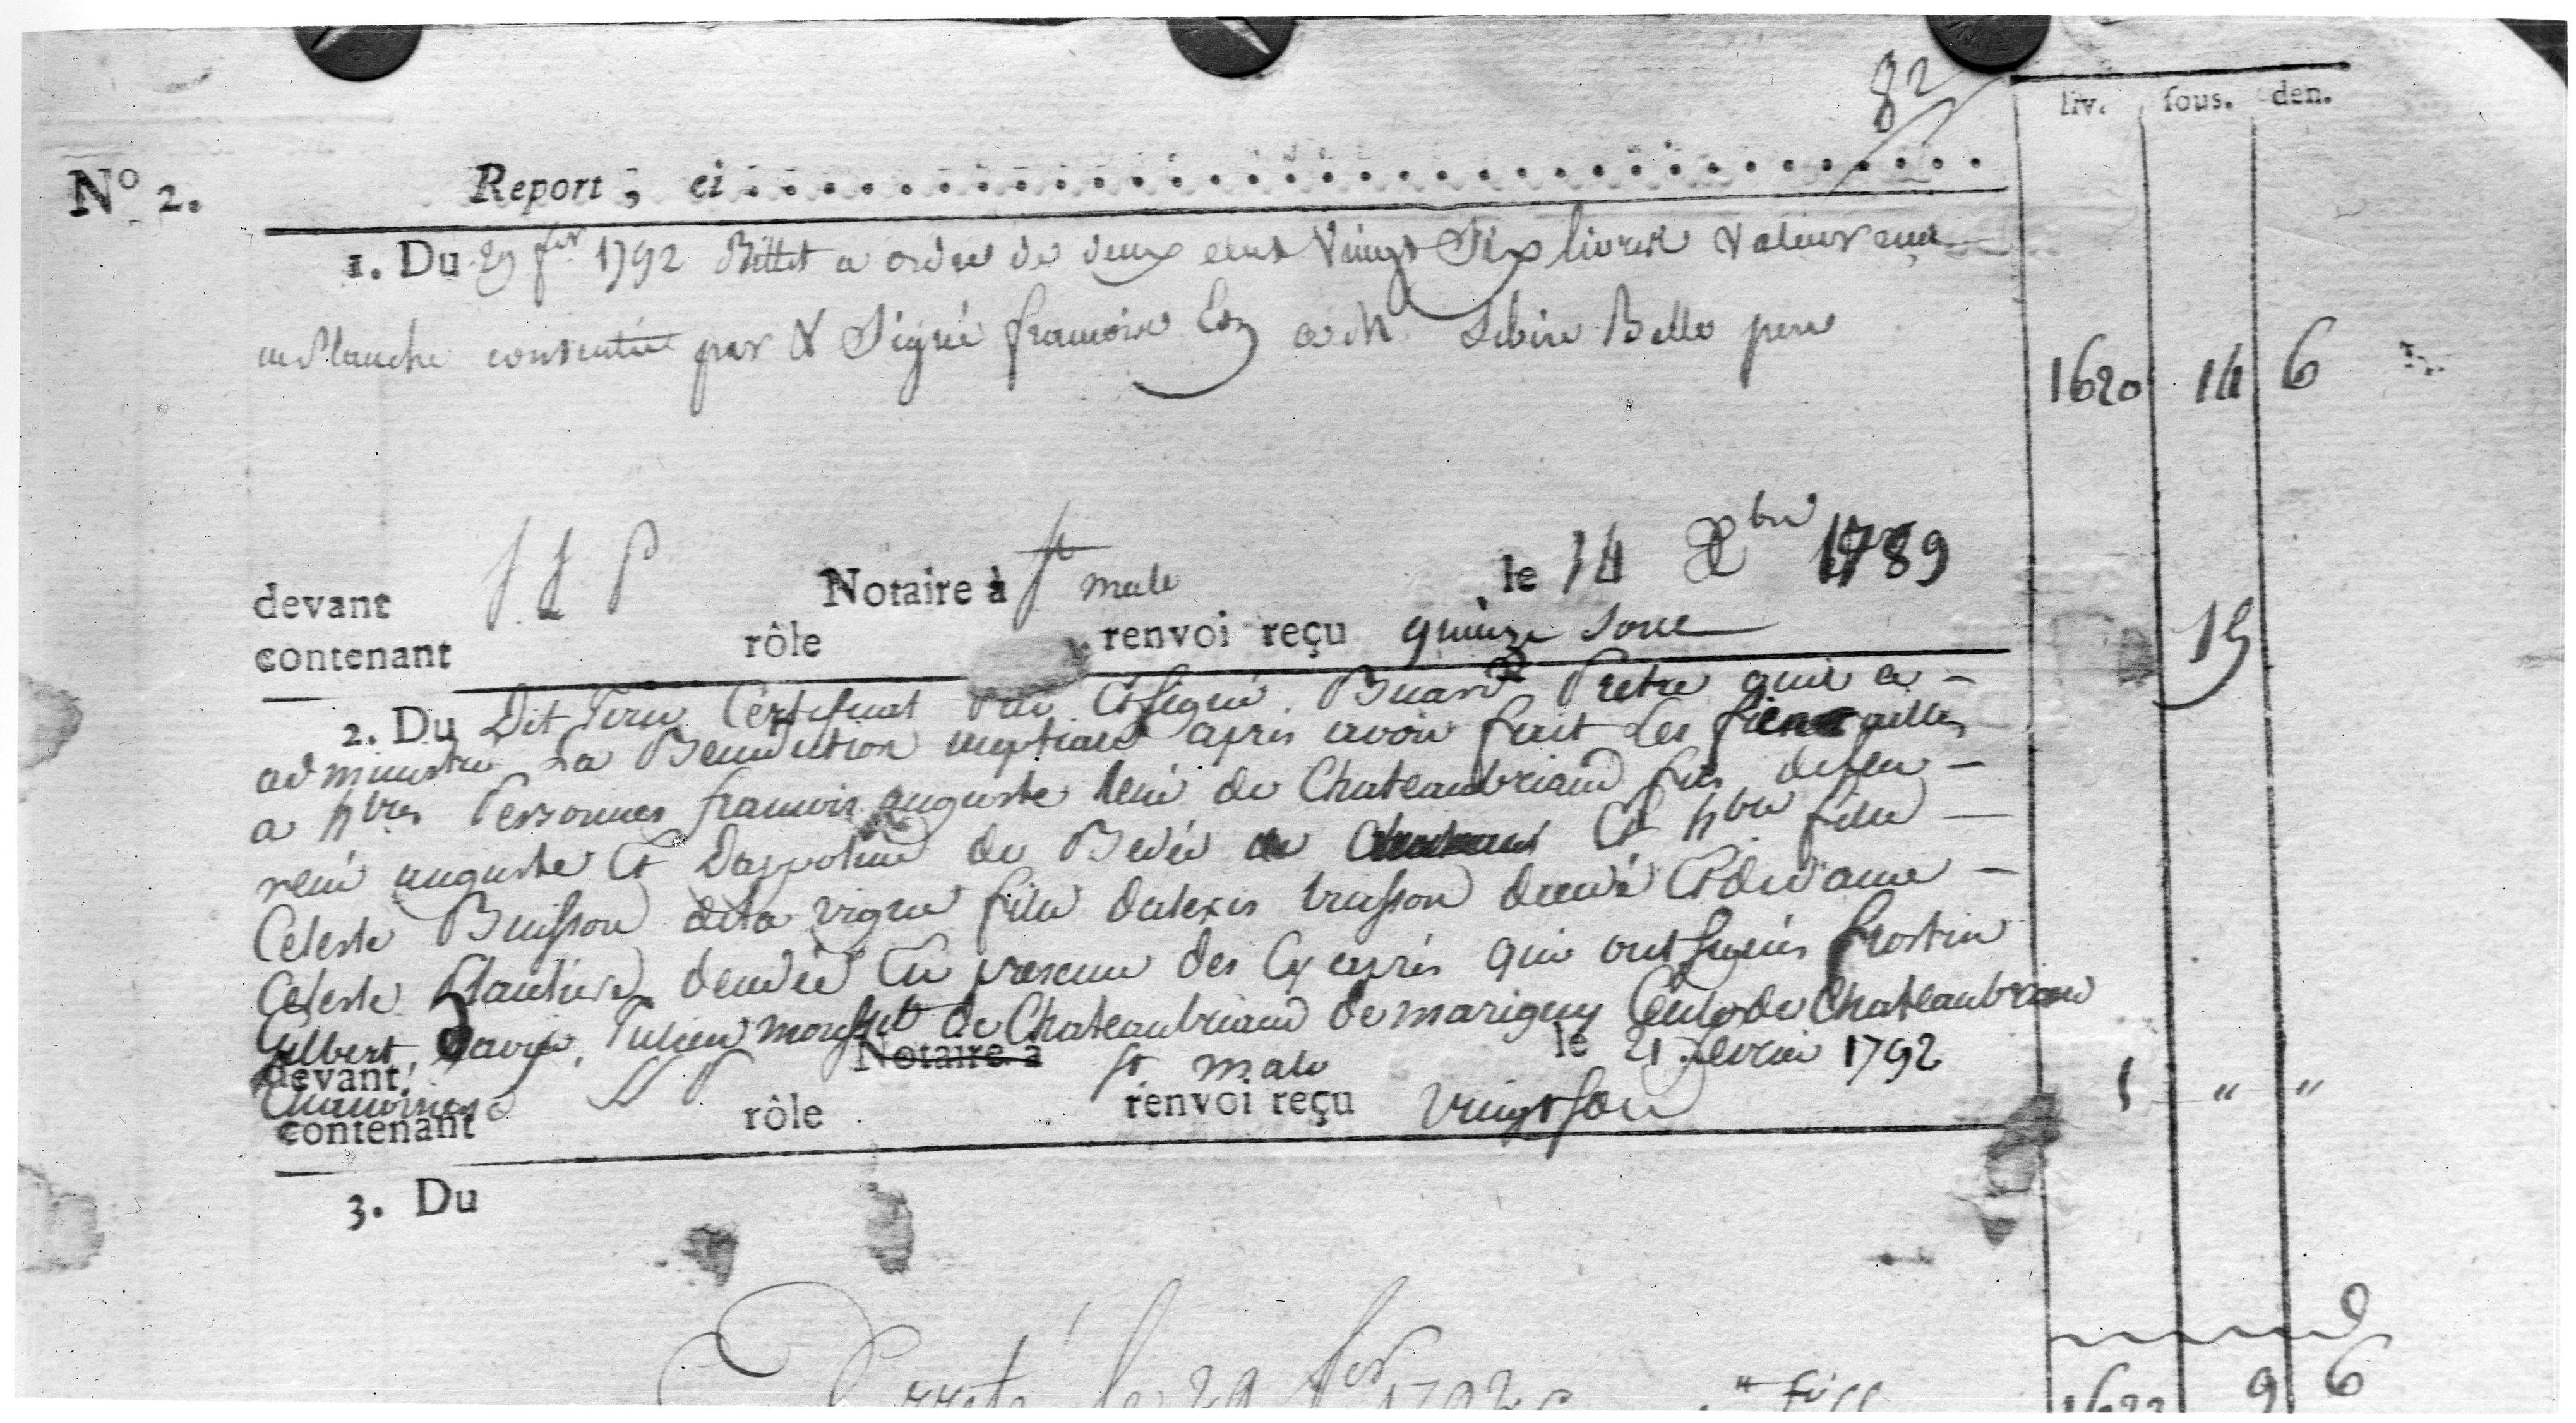 82
liv. sous. den.
N.° 2. Report, ci
1. Du 29 fer 1792 Billet a ordre de deux cent vingt six livres valeur
en planche consentie par & Signé francoise a M. Sebire Bello pere
1620 14 6
devant S S P Notaire à St malo le 14 Xbre 1789
contenant rôle renvoi reçu quinze sous
15
2. Du Dit Jour Certificat par et signé Buard Pretre qui a
administré La Benediction nuptiale apres avoir fait les fiencailles
a hbles Personnes francois auguste René de Chateaubriand fils defeu
rené auguste et dappoline de Bedée Et hble fille
Celeste Buisson dela vigne fille dalexis buisson decedé Et de dame
Celeste Rapion decedée En presence des Cy aprés qui ont signés
Gilbert, Julien de Chateaubriand de marigny de Chateaubriand
devant S S P Notaire à St malo le 21 fevrier 1792
contenant rôle renvoi reçu vingt sou
1 " "
3. Du
Arreté le 29 fer 1792
1622 9 6